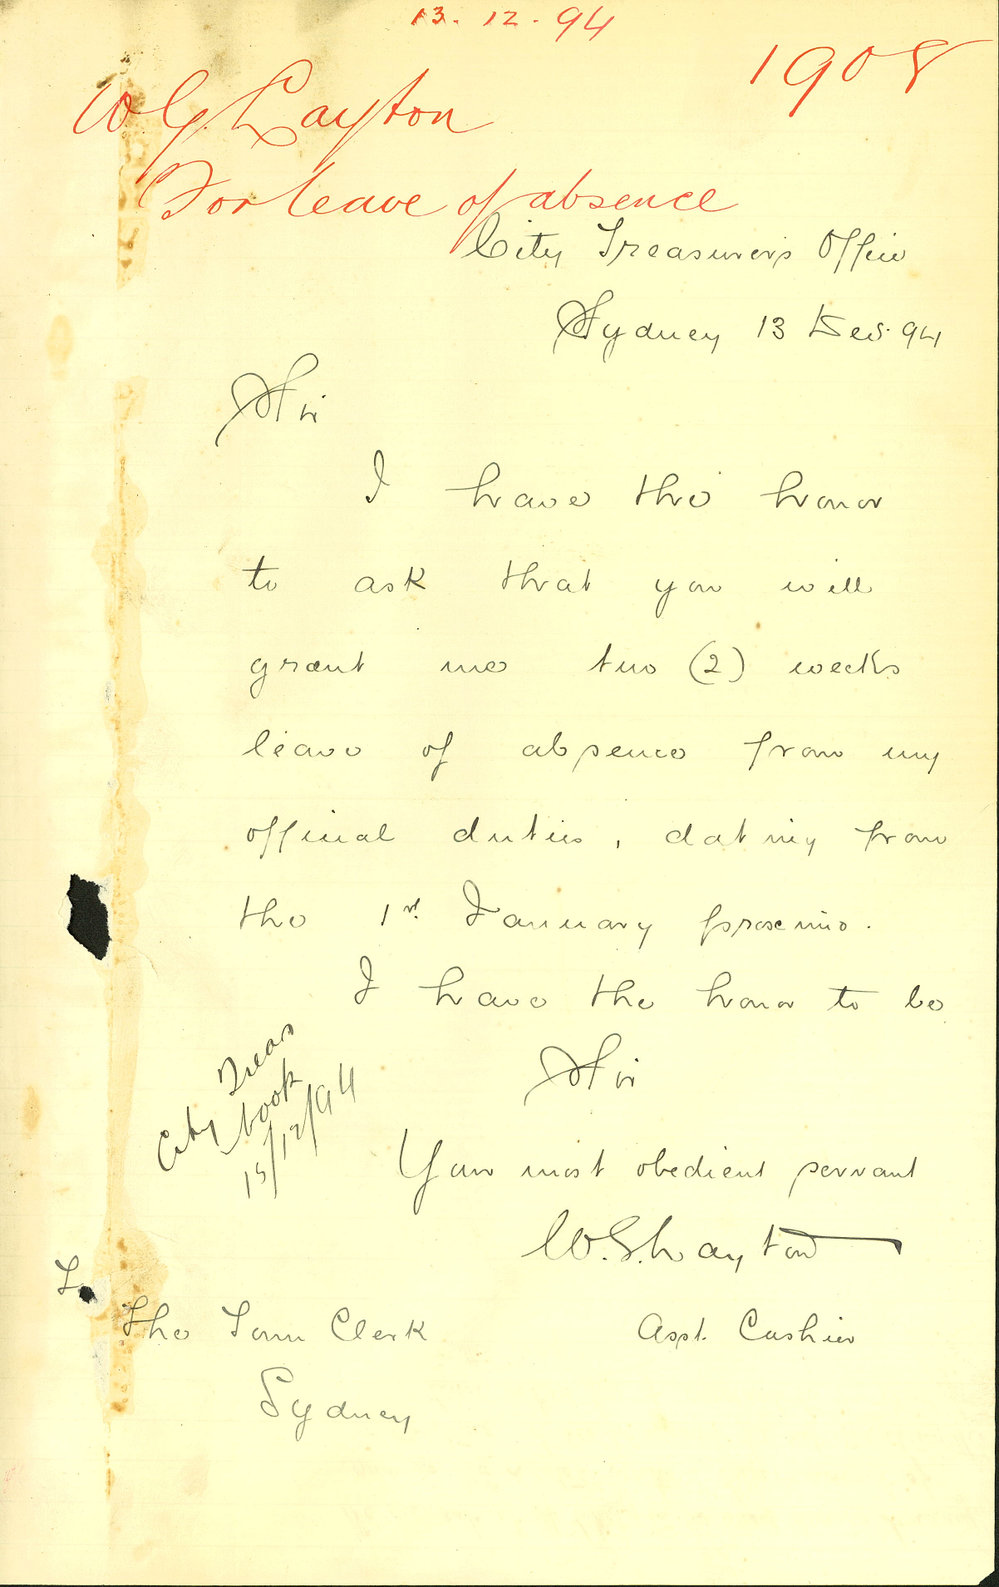 13. 12. 94
1908
W G. Layton
For leave of absence
City Treasurer's Office
Sydney 13 Decr. 94
Sir
I have the honor
to ask that you will
grant me two (2) weeks
leave of absence from my
official duties, dating from
the 1st. January proximo.
I have the honor to be
Sir
Your most obedient servant
W. G. Layton
Asst. Cashier
City Treas
book
15/12/94
To
The Town Clerk
Sydney